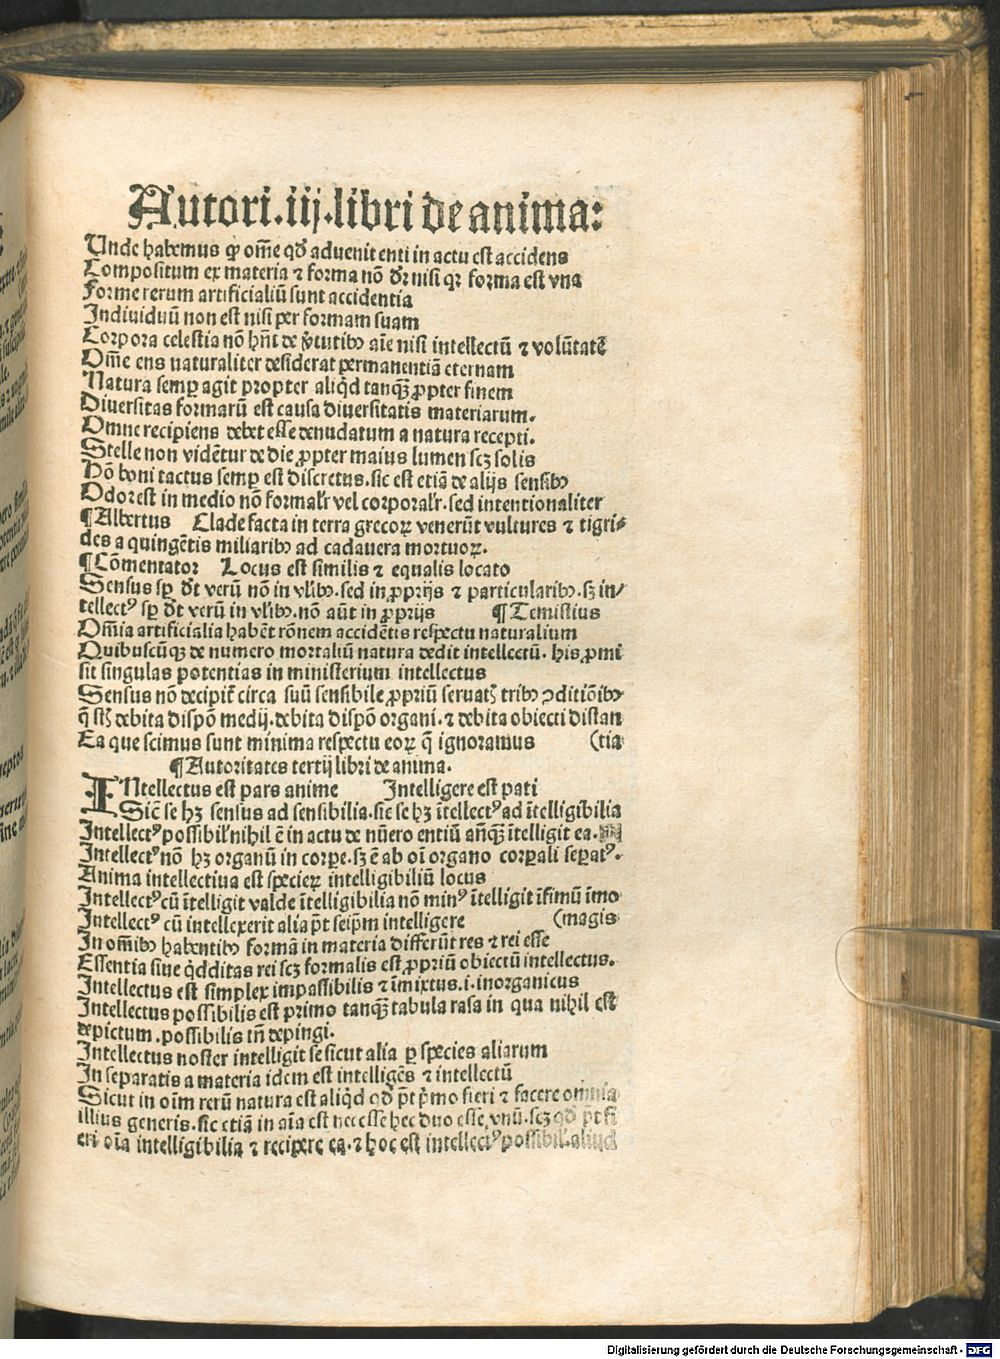 Autori.iij.libri de anima:
Unde habemus ꝙ om̄e qđ aduenit enti in actu est accidens
Compositum ex materia ⁊ forma nō dr̄ nisi qꝛ forma est vna
Forme rerum artificialiū sunt accidentia
Indiuiduū non est nisi per formam suam
Corpora celestia nō hn̄t de v̓tutibꝫ aīe nisi intellectū ⁊ volūtatē
Om̄e ens naturaliter desiderat permanentiā eternam
Natura semꝑ agit propter aliqd tanqꝫ ꝓpter finem
Diuersitas formarū est causa diuersitatis materiarum.
Omne recipiens debet esse denudatum a natura recepti.
Stelle non vidētur de die ꝓpter maius lumen scꝫ solis
Hō boni tactus semꝑ est discretus.sic est etiā de alijs sensibꝫ
Odor est in medio nō formalr̄ vel corporalr̄.sed intentionaliter
¶Albertus Clade facta in terra grecoꝝ venerūt vultures ⁊ tigri⸗
des a quingētis miliaribꝫ ad cadauera mortuoꝝ.
¶Cōmentator Locus est similis ⁊ equalis locato
Sensus sꝑ dr̄t verū nō in vl̓ibꝫ.sed in ꝓprijs ⁊ particularibꝫ.sꝫ in⸗
tellectꝰ sꝑ dr̄t verū in vl̓ibꝫ.nō aūt in ꝓprijs ¶Temistius
Om̄ia artificialia habēt rōnem accidētis respectu naturalium
Quibuscūqꝫ de numero mortaliū natura dedit intellectū.his ꝓmi
sit singulas potentias in ministerium intellectus
Sensus nō decipit̄ circa suū sensibile ꝓpriū seruatꝭ tribꝫ ꝯditiōibꝫ
q̄ sūt debita dispō medij.debita dispō organi.⁊ debita obiecti distan
Ea que scimus sunt minima respectu eoꝝ q̄ ignoramus (tia
¶Autoritates tertij libri de anima.
INtellectus est pars anime Intelligere est pati
Sic̄ se hꝫ sensus ad sensibilia.sic̄ se hꝫ ītellectꝰ ad ītelligibilia
Intellectꝰ possibil̓ nihil ē in actu de nūero entiū an̄qꝫ ītelligit ea.
Intellectꝰ nō hꝫ organū in corꝑe.sꝫ ē ab oī organo corꝑali seꝑatꝰ.
Anima intellectiua est specieꝝ intelligibiliū locus
Intellectꝰ cū ītelligit valde ītelligibilia nō minꝰ ītelligit īfimū īmo
Intellectꝰ cū intellexerit alia p̄t seip̄m intelligere (magis
In om̄ibꝫ habentibꝫ formā in materia differūt res ⁊ rei esse
Essentia siue qdditas rei scꝫ formalis est ꝓpriū obiectū intellectus.
Intellectus est simplex impassibilis ⁊ īmixtus.i.inorganicus
Intellectus possibilis est primo tanqꝫ tabula rasa in qua nihil est
depictum.possibilis tn̄ depingi.
Intellectus noster intelligit se sicut alia ꝑ species aliarum
In separatis a materia idem est intelligēs ⁊ intellectū
Sicut in oīm rerū natura est aliqd qđ p̄t p̓mo fieri ⁊ facere omnia
illius generis.sic etiā in aīa est necesse hec duo esse.vnū.scꝫ qđ p̄t fi
eri oīa intelligibilia ⁊ recipere ea.⁊ hoc est intellectꝰ possibil̓.aliud
Digitalisierung gefördert durch die Deutsche Forschungsgemeinschaft - DFG